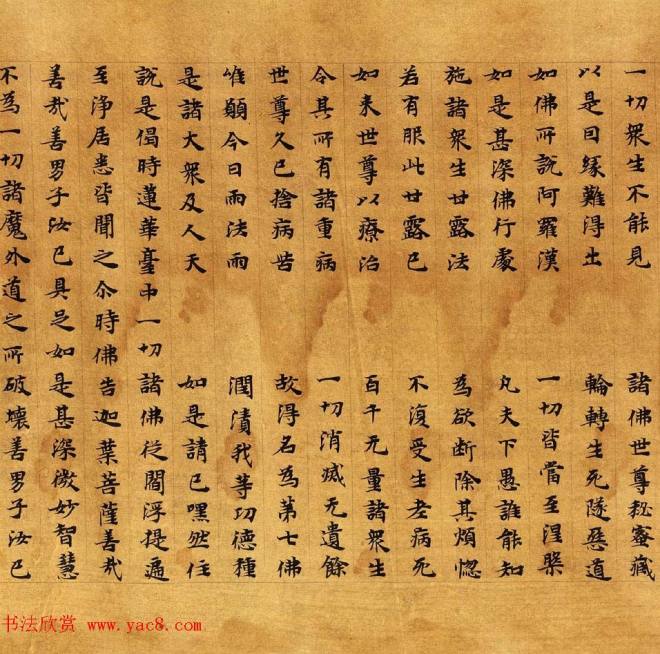 一切衆生不能見 諸佛世尊秘蜜藏
以是因緣難得出 輪轉生死隧惡道
如佛所說阿羅漢 一切皆當至涅槃
如是甚深佛行處 凡夫下愚誰能知
施諸衆生甘露法 為欲断除其煩惚
若有服此甘露已 不復受生老病死
如来世尊以療治 百千无量諸衆生
令其所有諸重病 一切消滅无遺餘
世尊久已捨病苦 故得名為第七佛
唯願今日雨法雨 潤漬我等功德種
是諸大衆及人天 如是請已嘿然住
說是偈時蓮華臺中一切諸佛從閻浮提遍
至淨居悉皆聞之尒時佛告迦葉菩薩善哉
善哉善男子汝已具足如是甚深微妙智慧
不為一切諸魔外道之所破壞善男子汝已
书法欣赏 www.yac8.com